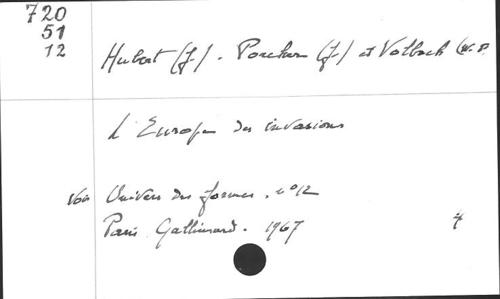 720
51
12
Hubert (J.). Porcher (J.) et Volbach (W. F.
L'Europe des invasions
Voir Univers des formes. n° 12
Paris Gallimard. 1967
4